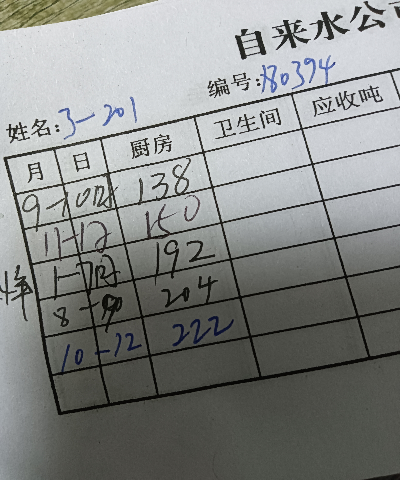 自来水公司
编号:180394
姓名:3-201
月 日 厨房 卫生间 应收吨
9-10月 138
11-12 150
1-7月 192
8-9 204
10-12 222